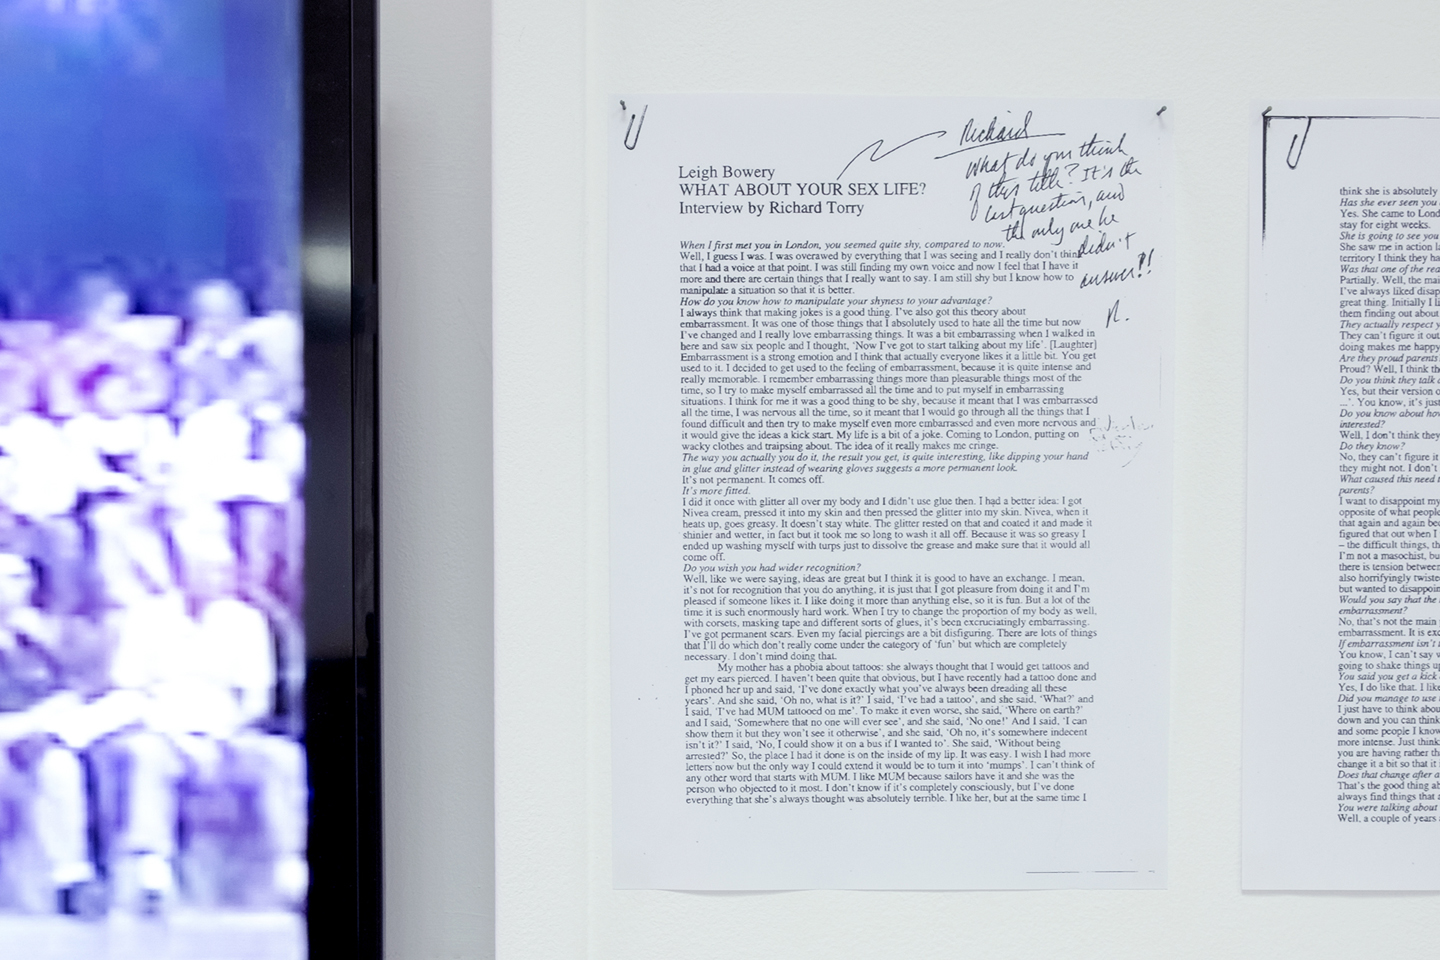 Leigh Bowery
WHAT ABOUT YOUR SEX LIFE?
Interview by Richard Torry
Richard
What do you think
of this title? It's the
last question, and
the only one he
didn't
answer!!
R.
When I first met you in London, you seemed quite shy, compared to now.
Well, I guess I was. I was overawed by everything that I was seeing and I really don't think
that I had a voice at that point. I was still finding my own voice and now I feel that I have it
more and there are certain things that I really want to say. I am still shy but I know how to
manipulate a situation so that it is better.
How do you know how to manipulate your shyness to your advantage?
I always think that making jokes is a good thing. I've also got this theory about
embarrassment. It was one of those things that I absolutely used to hate all the time but now
I've changed and I really love embarrassing things. It was a bit embarrassing when I walked in
here and saw six people and I thought, 'Now I've got to start talking about my life'. [Laughter]
Embarrassment is a strong emotion and I think that actually everyone likes it a little bit. You get
used to it. I decided to get used to the feeling of embarrassment, because it is quite intense and
really memorable. I remember embarrassing things more than pleasurable things most of the
time, so I try to make myself embarrassed all the time and to put myself in embarrassing
situations. I think for me it was a good thing to be shy, because it meant that I was embarrassed
all the time, I was nervous all the time, so it meant that I would go through all the things that I
found difficult and then try to make myself even more embarrassed and even more nervous and
it would give the ideas a kick start. My life is a bit of a joke. Coming to London, putting on
wacky clothes and traipsing about. The idea of it really makes me cringe.
The way you actually you do it, the result you get, is quite interesting, like dipping your hand
in glue and glitter instead of wearing gloves suggests a more permanent look.
It's not permanent. It comes off.
It's more fitted.
I did it once with glitter all over my body and I didn't use glue then. I had a better idea: I got
Nivea cream, pressed it into my skin and then pressed the glitter into my skin. Nivea, when it
heats up, goes greasy. It doesn't stay white. The glitter rested on that and coated it and made it
shinier and wetter, in fact but it took me so long to wash it all off. Because it was so greasy I
ended up washing myself with turps just to dissolve the grease and make sure that it would all
come off.
Do you wish you had wider recognition?
Well, like we were saying, ideas are great but I think it is good to have an exchange. I mean,
it's not for recognition that you do anything, it is just that I got pleasure from doing it and I'm
pleased if someone likes it. I like doing it more than anything else, so it is fun. But a lot of the
time it is such enormously hard work. When I try to change the proportion of my body as well,
with corsets, masking tape and different sorts of glues, it's been excruciatingly embarrassing.
I've got permanent scars. Even my facial piercings are a bit disfiguring. There are lots of things
that I'll do which don't really come under the category of 'fun' but which are completely
necessary. I don't mind doing that.
My mother has a phobia about tattoos: she always thought that I would get tattoos and
get my ears pierced. I haven't been quite that obvious, but I have recently had a tattoo done and
I phoned her up and said, 'I've done exactly what you've always been dreading all these
years'. And she said, 'Oh no, what is it?' I said, 'I've had a tattoo', and she said, 'What?' and
I said, 'I've had MUM tattooed on me'. To make it even worse, she said, 'Where on earth?'
and I said, 'Somewhere that no one will ever see', and she said, 'No one!' And I said, 'I can
show them it but they won't see it otherwise', and she said, 'Oh no, it's somewhere indecent
isn't it?' I said, 'No, I could show it on a bus if I wanted to'. She said, 'Without being
arrested?' So, the place I had it done is on the inside of my lip. It was easy. I wish I had more
letters now but the only way I could extend it would be to turn it into 'mumps'. I can't think of
any other word that starts with MUM. I like MUM because sailors have it and she was the
person who objected to it most. I don't know if it's completely consciously, but I've done
everything that she's always thought was absolutely terrible. I like her, but at the same time I
think she is absolutely
Has she ever seen you
Yes. She came to Lond
stay for eight weeks.
She is going to see you
She saw me in action la
territory I think they ha
Was that one of the rea
Partially. Well, the mai
I've always liked disap
great thing. Initially I li
them finding out about
They actually respect y
They can't figure it out
doing makes me happy
Are they proud parents
Proud? Well, I think th
Do you think they talk a
Yes, but their version o
...'. You know, it's just
Do you know about how
interested?
Well, I don't think they
Do they know?
No, they can't figure it
they might not. I don't
What caused this need t
parents?
I want to disappoint my
opposite of what people
that again and again bec
figured that out when I
– the difficult things, th
I'm not a masochist, bu
there is tension between
also horrifyingly twiste
but wanted to disappoin
Would you say that the
embarrassment?
No, that's not the main
embarrassment. It is exc
If embarrassment isn't t
You know, I can't say w
going to shake things up
You said you get a kick
Yes, I do like that. I like
Did you manage to use
I just have to think abou
down and you can think
and some people I know
more intense. Just think
you are having rather th
change it a bit so that it
Does that change after a
That's the good thing ab
always find things that
You were talking about
Well, a couple of years